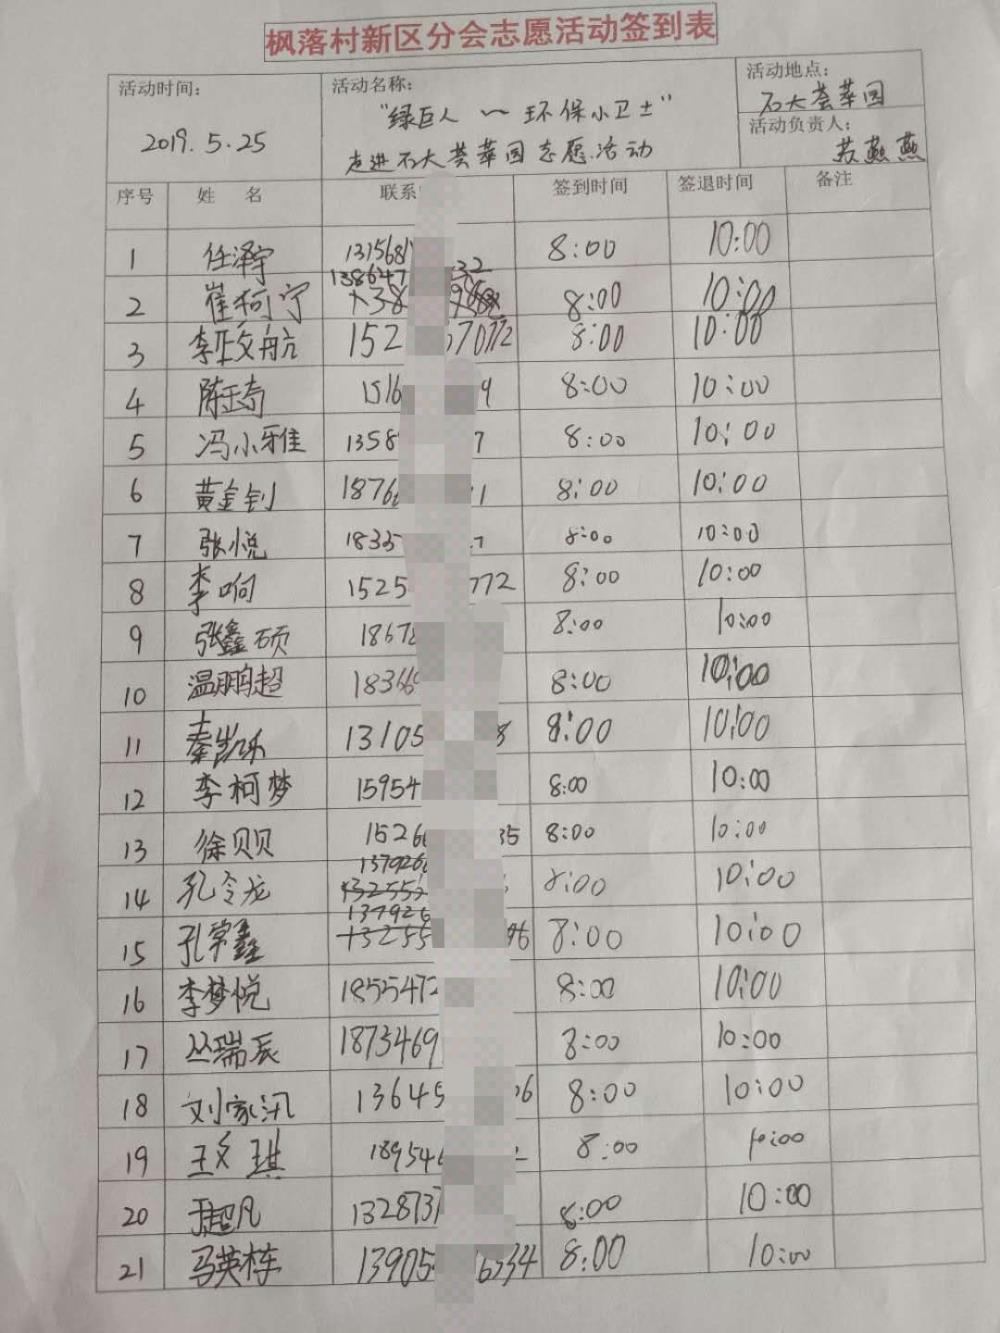 枫落村新区分会志愿活动签到表
活动时间： 活动名称： 活动地点：
2019.5.25 "绿巨人～环保小卫士" 石大荟萃园
走进石大荟萃园志愿活动 活动负责人：
苏燕燕
序号 姓 名 联系 签到时间 签退时间 备注
1 任泽宇 1315681 8:00 10:00
2 崔柯宁 138647 32 8:00 10:00
3 李政航 152 570772 8:00 10:00
4 陈玉奇 1516 9 8:00 10:00
5 冯小雅 1358 7 8:00 10:00
6 黄金钊 1876 1 8:00 10:00
7 张悦 1835 7 8:00 10:00
8 李响 1525 772 8:00 10:00
9 张鑫硕 1867 8:00 10:00
10 温鹏超 18366 8:00 10:00
11 秦 13105 8 8:00 10:00
12 李柯梦 15954 8:00 10:00
13 徐贝贝 1526 35 8:00 10:00
14 孔令龙 137926 8:00 10:00
15 孔常鑫 137926 8:00 10:00
16 李梦悦 1855472 8:00 10:00
17 丛瑞辰 1873469 8:00 10:00
18 刘家汛 13645 06 8:00 10:00
19 王文琪 189546 2 8:00 10:00
20 于超凡 1328737 8:00 10:00
21 马英栋 13905 6534 8:00 10:00